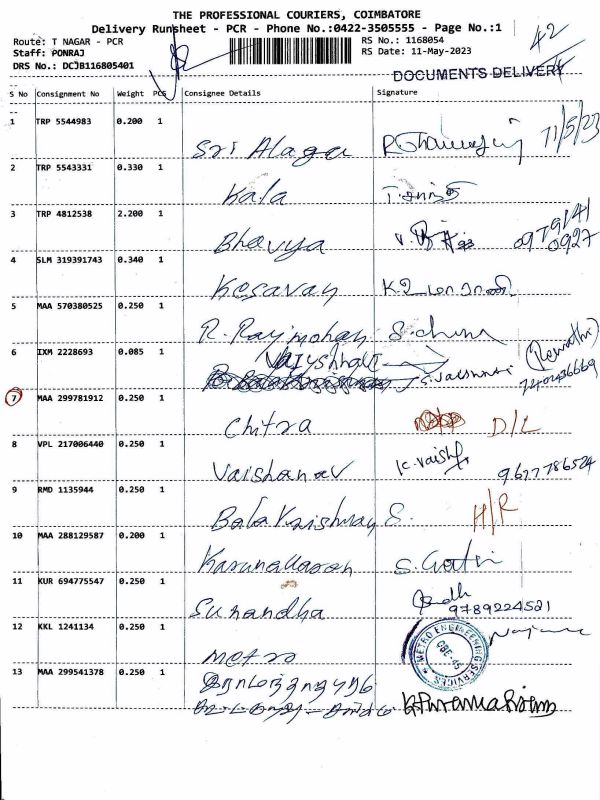 THE PROFESSIONAL COURIERS, COIMBATORE
Delivery Runsheet - PCR - Phone No.:0422-3505555 - Page No.:1
Route: T NAGAR - PCR
RS No.: 1168054
42
Staff: PONRAJ
RS Date: 11-May-2023
DRS No.: DCJB116805401
DOCUMENTS DELIVERY
S No Consignment No Weight PCS Consignee Details Signature
1 TRP 5544983 0.200 1
Sri Alagu 11/5/23
2 TRP 5543331 0.330 1
Kala
3 TRP 4812538 2.200 1
Bhavya 0979141
0927
4 SLM 319391743 0.340 1
Kesavan K உமாராணி
5 MAA 570380525 0.250 1
R. Rajmohan
6 IXM 2228693 0.085 1
Vaiyshnavi (Revathi)
7 MAA 299781912 0.250 1
Chitra D/L
8 VPL 217006440 0.250 1
Vaishanav K. Vaish 9677786524
9 RMD 1135944 0.250 1
Bala Krishnan S. H/R
10 MAA 288129587 0.200 1
Karunakaran
11 KUR 694775547 0.250 1
Sunandha 9789224521
12 KKL 1241134 0.250 1
metro METRO ENGINEERING SERVICES CBE-45
13 MAA 299541378 0.250 1